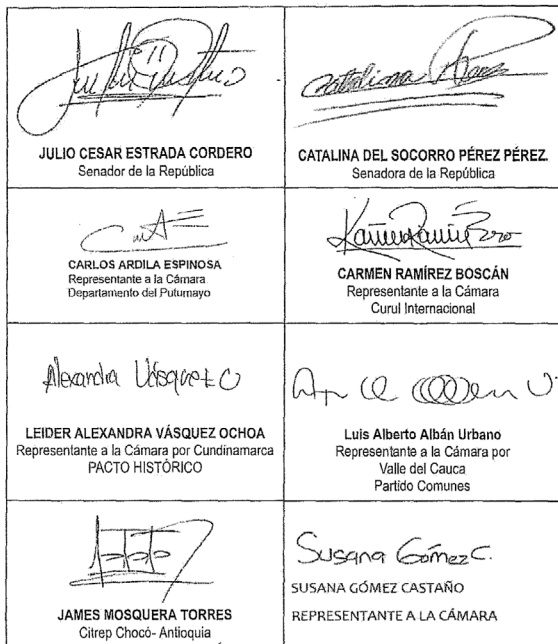 JULIO CESAR ESTRADA CORDERO
Senador de la República
Catalina Pérez
CATALINA DEL SOCORRO PÉREZ PÉREZ.
Senadora de la República
CARLOS ARDILA ESPINOSA
Representante a la Cámara
Departamento del Putumayo
CARMEN RAMÍREZ BOSCÁN
Representante a la Cámara
Curul Internacional
Alexandra Vásquez O
LEIDER ALEXANDRA VÁSQUEZ OCHOA
Representante a la Cámara por Cundinamarca
PACTO HISTÓRICO
Luis Alberto Albán Urbano
Representante a la Cámara por
Valle del Cauca
Partido Comunes
JAMES MOSQUERA TORRES
Citrep Chocó- Antioquia
Susana Gómez C.
SUSANA GÓMEZ CASTAÑO
REPRESENTANTE A LA CÁMARA